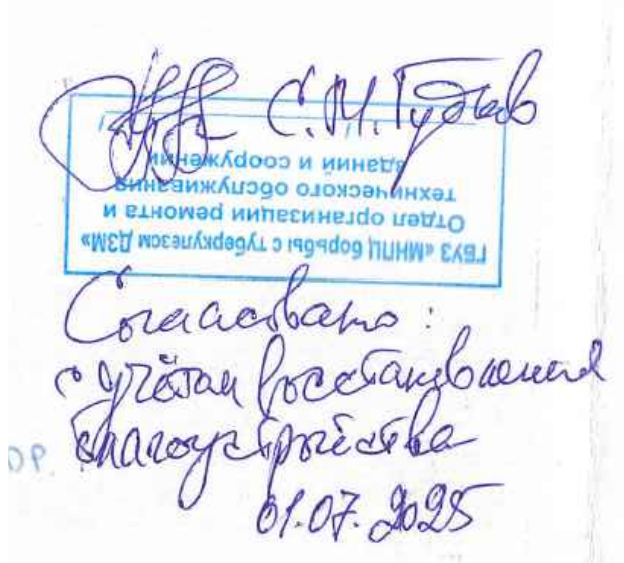 С.М. Гудков
ГБУЗ «МНПЦ борьбы с туберкулезом ДЗМ»
Отдел организации ремонта и
технического обслуживания
зданий и сооружений
Согласовано:
с учётом восстановления
благоустройства
01.07.2025